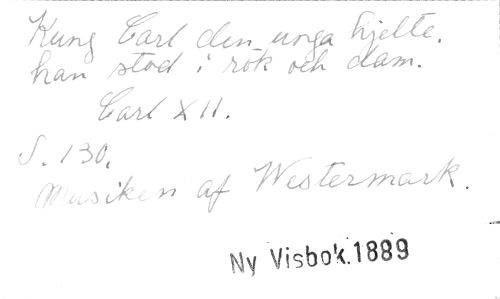 Kung Carl den unga hjelte.
han stod i rök och dam.
Carl XII.
S. 130.
Musiken af Westermark.
Ny Visbok.1889